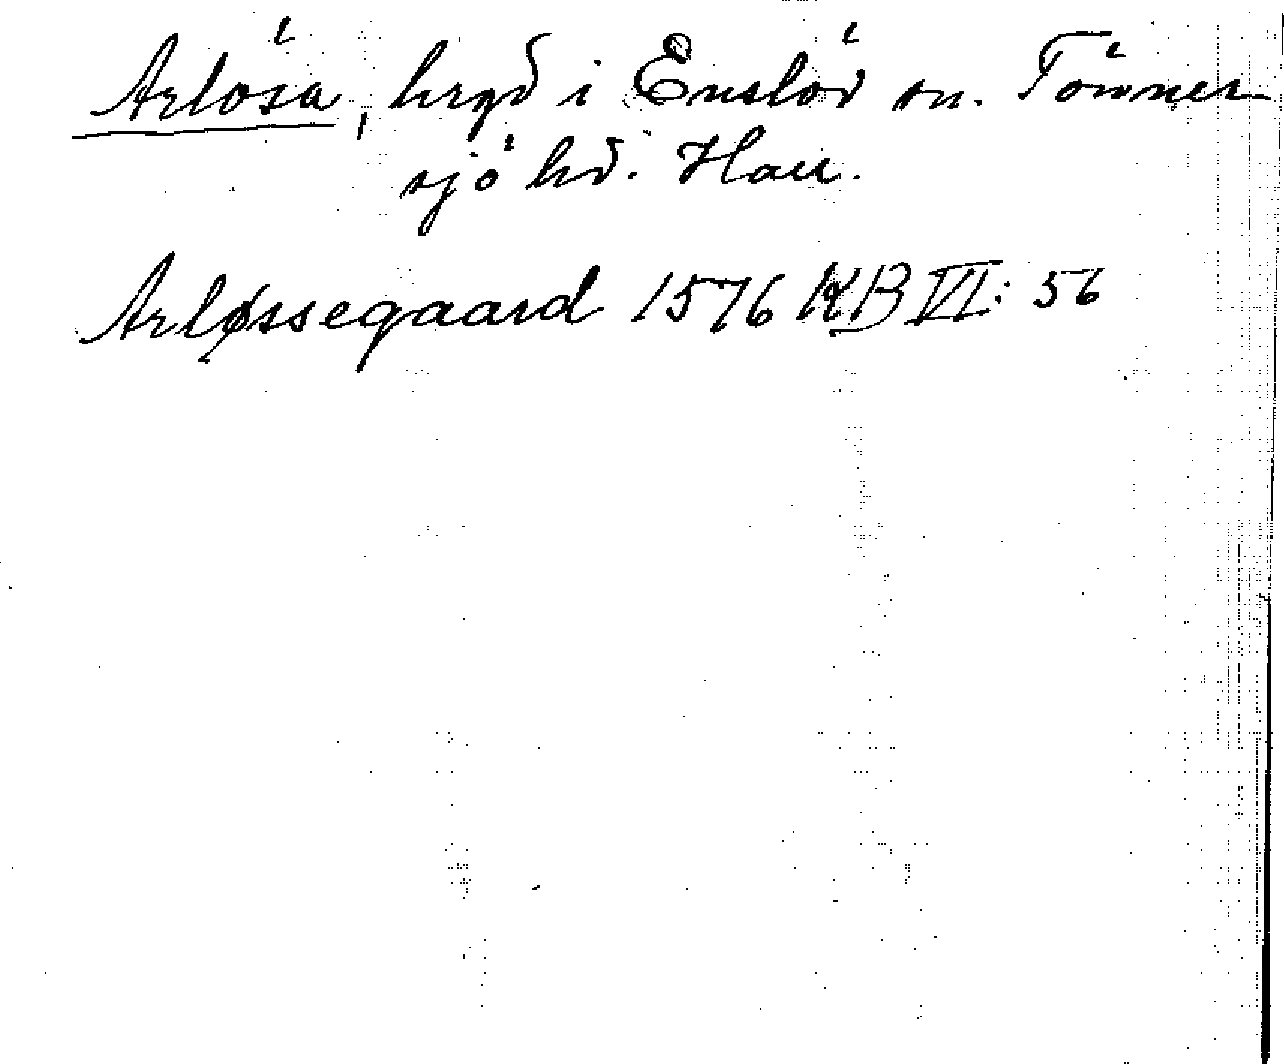 Arlösa, hrgd i Enslöv sn. Tönner-
sjö hd. Hall.
Arløssegaard 1576 KB VI: 56